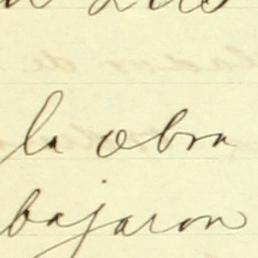 la obra
bajaron